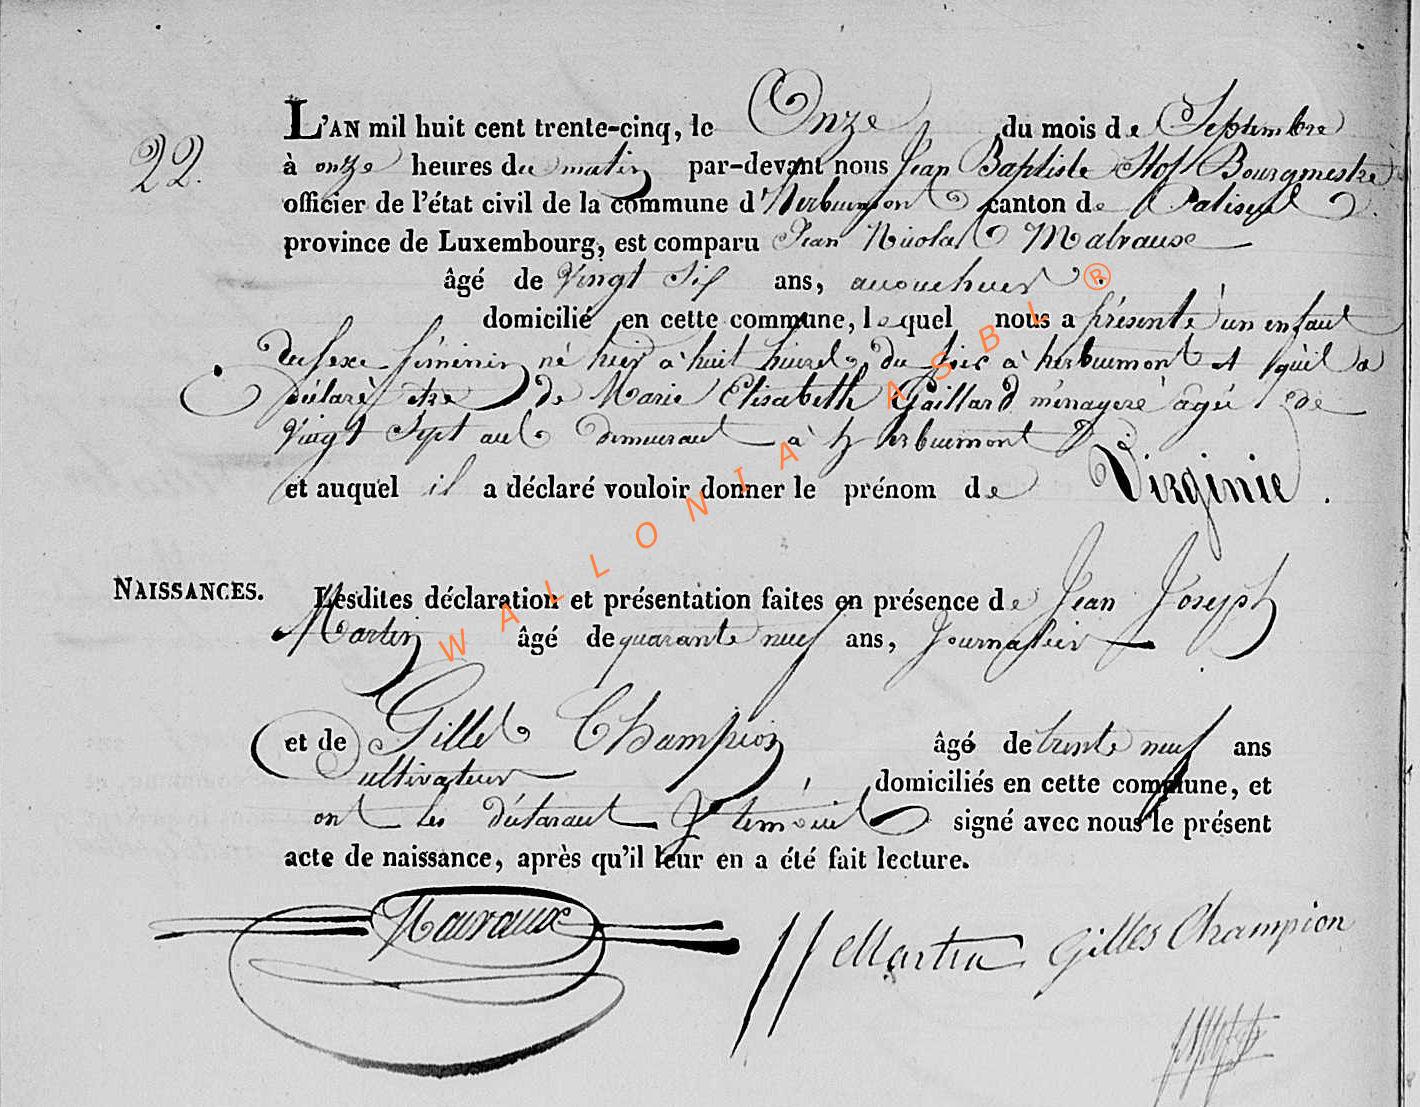 22.
L'AN mil huit cent trente-cinq, le Onze du mois de Septembre
à onze heures du matin par-devant nous Jean Baptiste Hoff Bourgmestre
officier de l'état civil de la commune d'Herbeumont canton de Paliseul
province de Luxembourg, est comparu Jean Nicolas
âgé de Vingt Six ans, accoucheur
domicilié en cette commune, lequel nous a présenté un enfant
du sexe féminin né hier à huit heures du soir à herbeumont et qu'il a
déclaré être de Marie Elisabeth Gaillard ménagère agée de
Vingt Sept ans demeurant à herbeumont
et auquel il a déclaré vouloir donner le prénom de Virginie.
NAISSANCES.
Lesdites déclaration et présentation faites en présence de Jean Joseph
Martin âgé de quarante neuf ans, Journalier
et de Gilles Champion âgé de trente neuf ans
Cultivateur domiciliés en cette commune, et
ont les déclarant & témoins signé avec nous le présent
acte de naissance, après qu'il leur en a été fait lecture.
JJ Martin Gilles Champion
WALLONIA ASBL ®